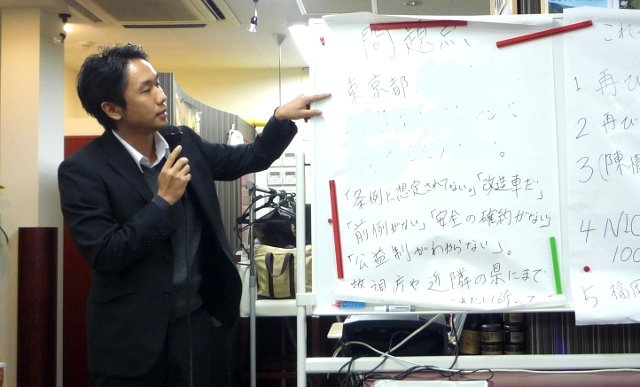 問題点
東京都
「条例に想定されてない。」「改造車だ」
「前例がない」「安全の確約がない」
「公益制がわからない」。
や近隣の県にまで
これ
1 再び
2 再び
3 (陳情
4 NIC
100
5 福岡